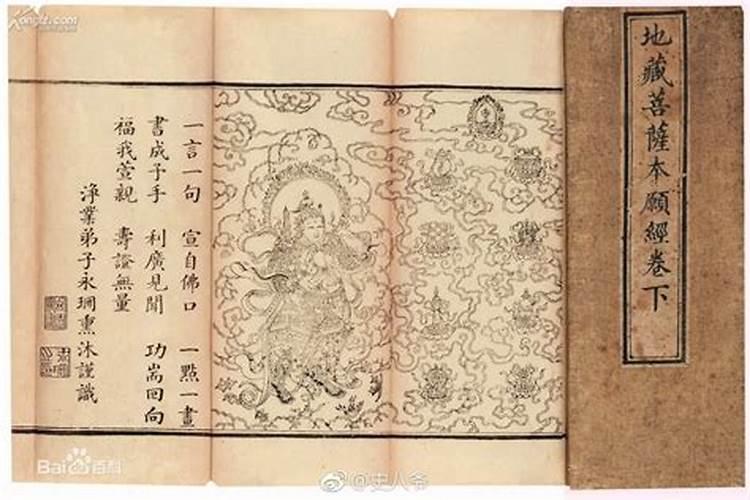 地藏菩薩本願經卷下
一言一句 宣自佛口 一點一畫
書成予手 利廣見聞 功耑回向
福我萱親 壽證無量
淨業弟子永珊熏沐謹識
Kongfz.com
Bai百科
@史人爷